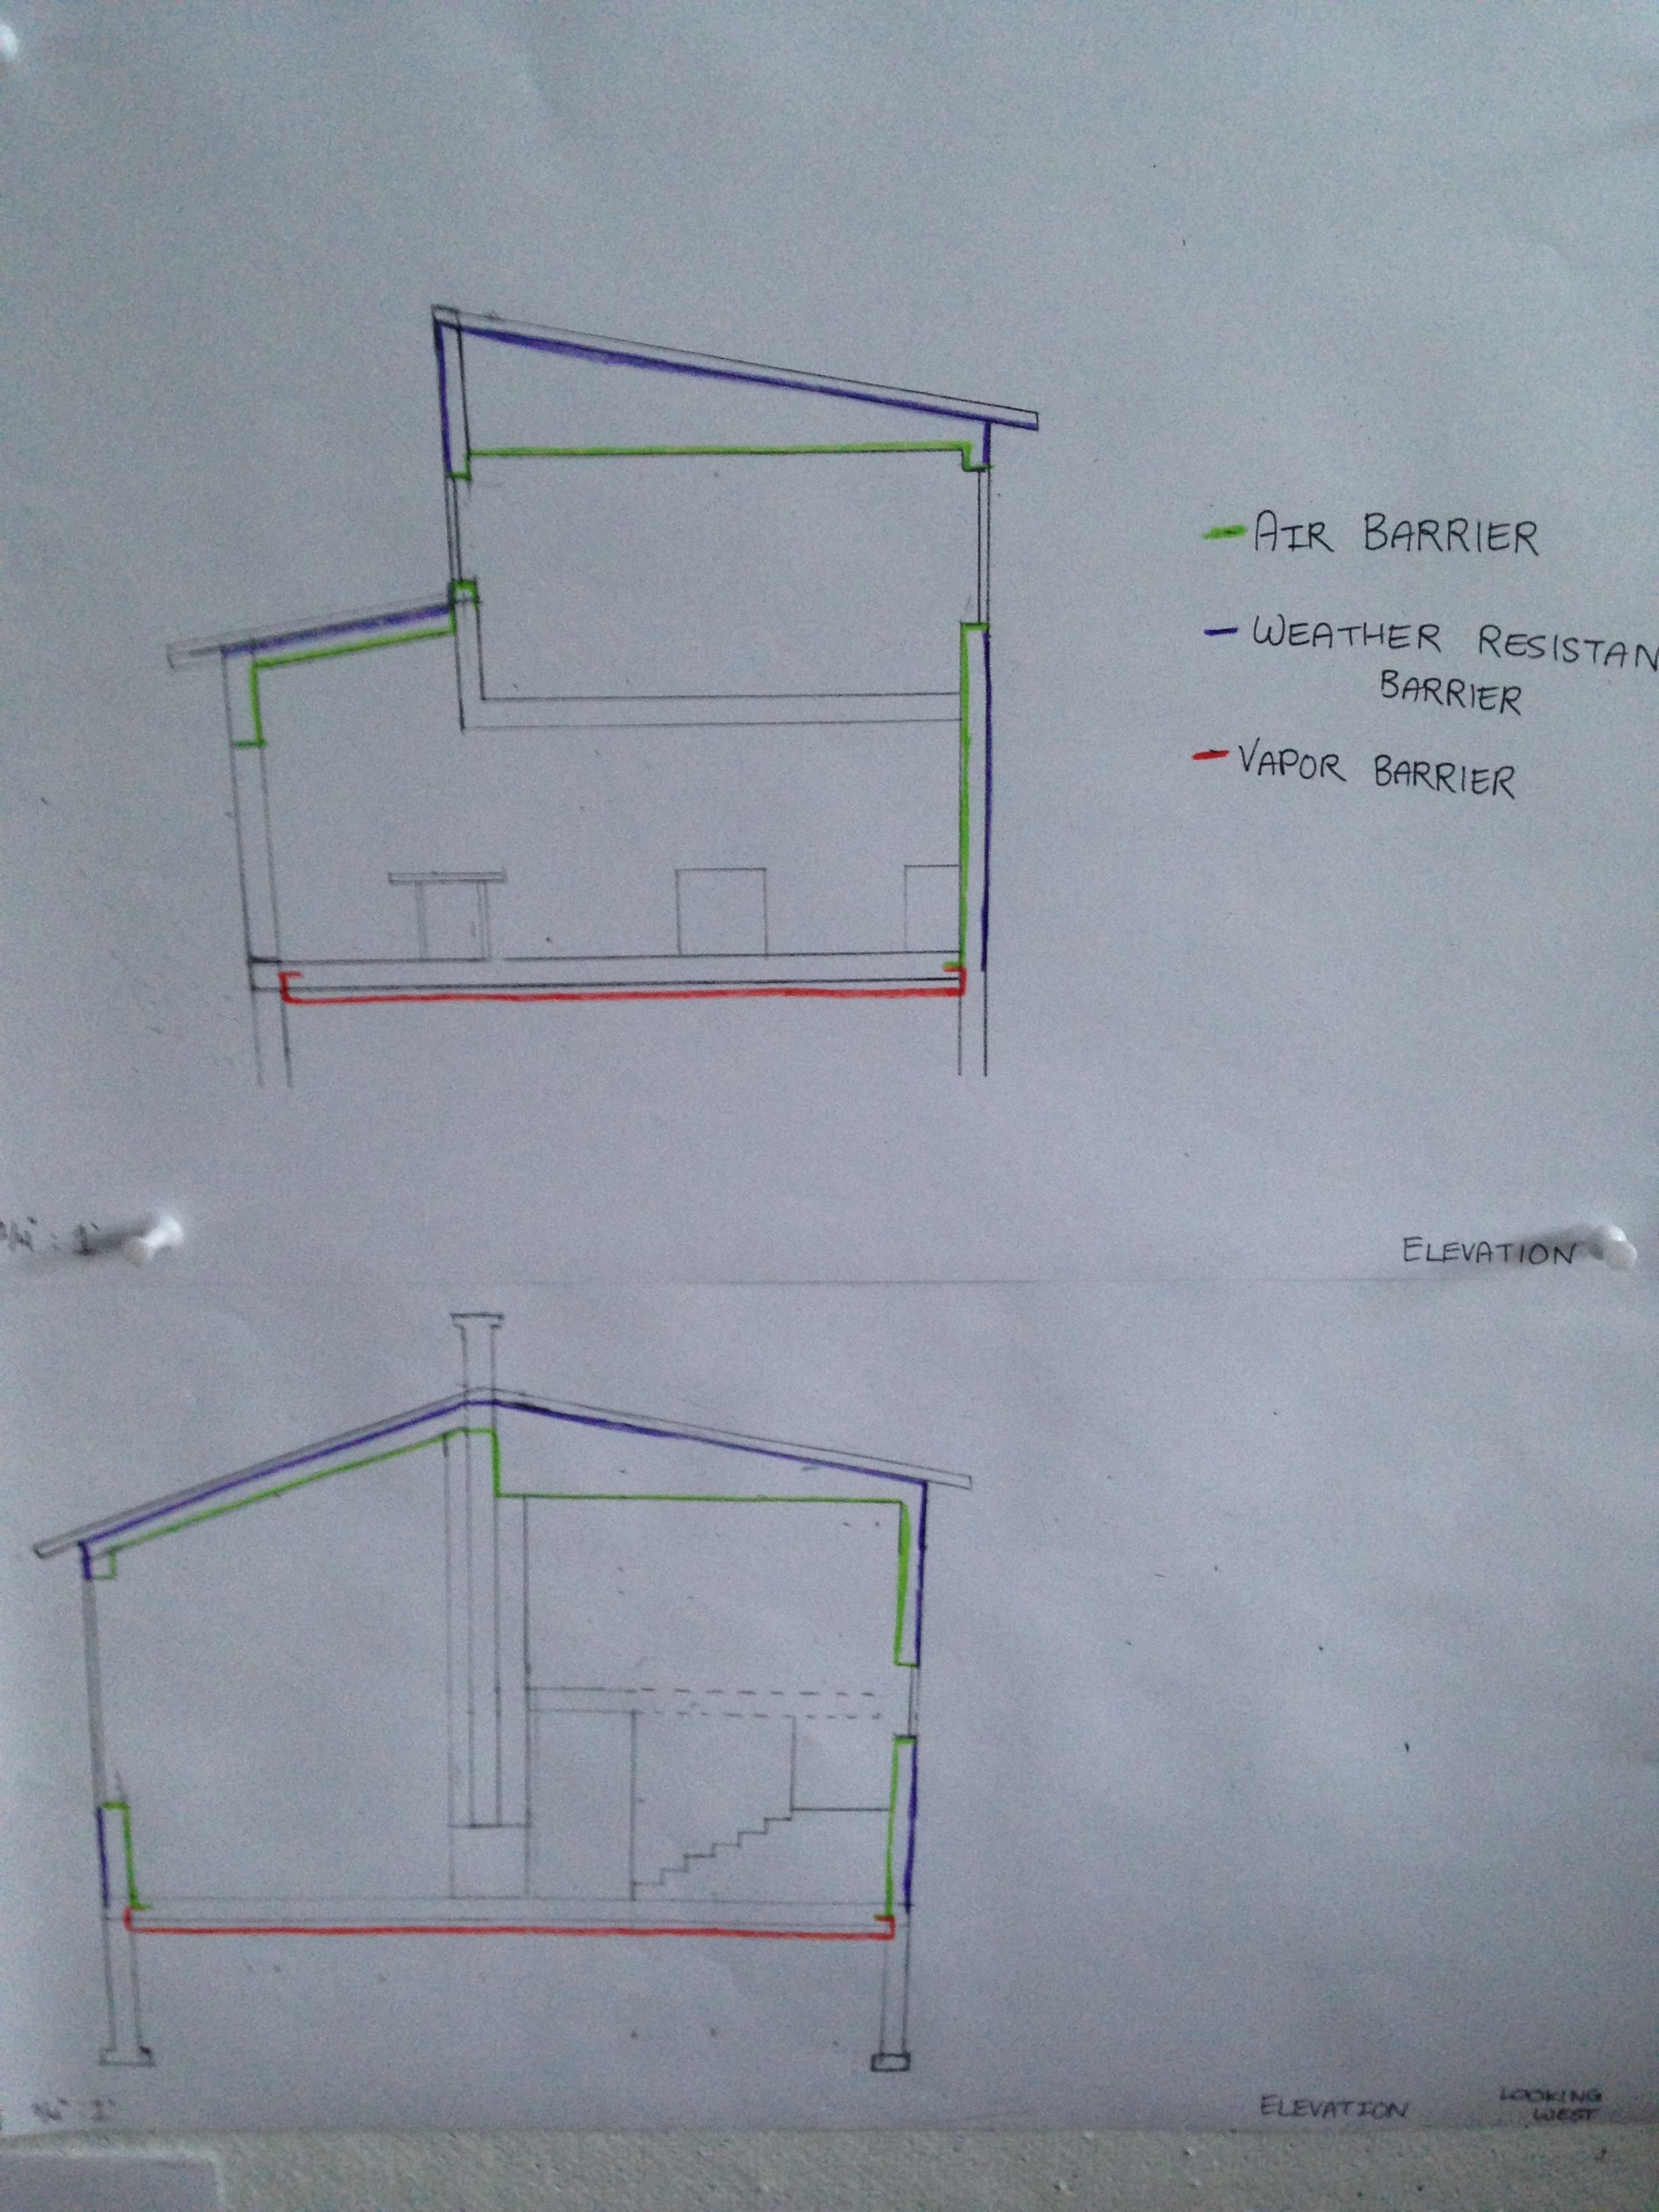 AIR BARRIER
WEATHER RESISTAN
BARRIER
VAPOR BARRIER
ELEVATION
ELEVATION
LOOKING
WEST